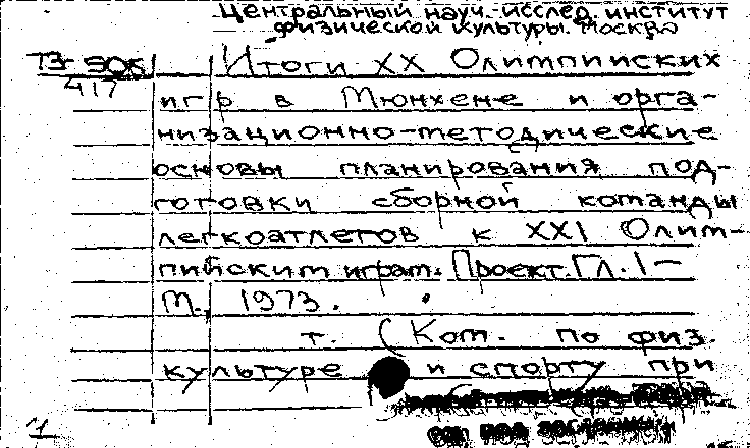 Центральный науч.-исслед. институт
физической культуры. Москва
Итоги XX Олимпийских
игр в Мюнхене и орга-
низационно-методические
основы планирования под-
готовки сборной команды
легкоатлетов к XXI Олим-
пийским играм. Проект. Гл. 1—
М., 1973.
т. (Ком. по физ.
культуре и спорту при